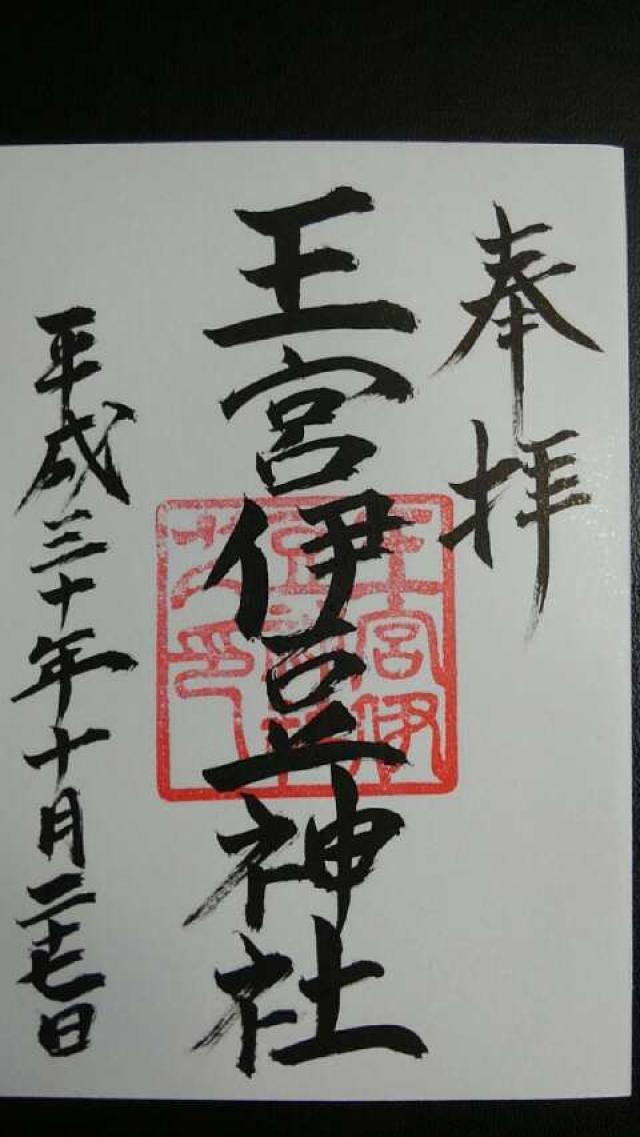 奉拝
王宮伊豆神社
王宮伊
豆神社
之印
平成三十年十月二十七日